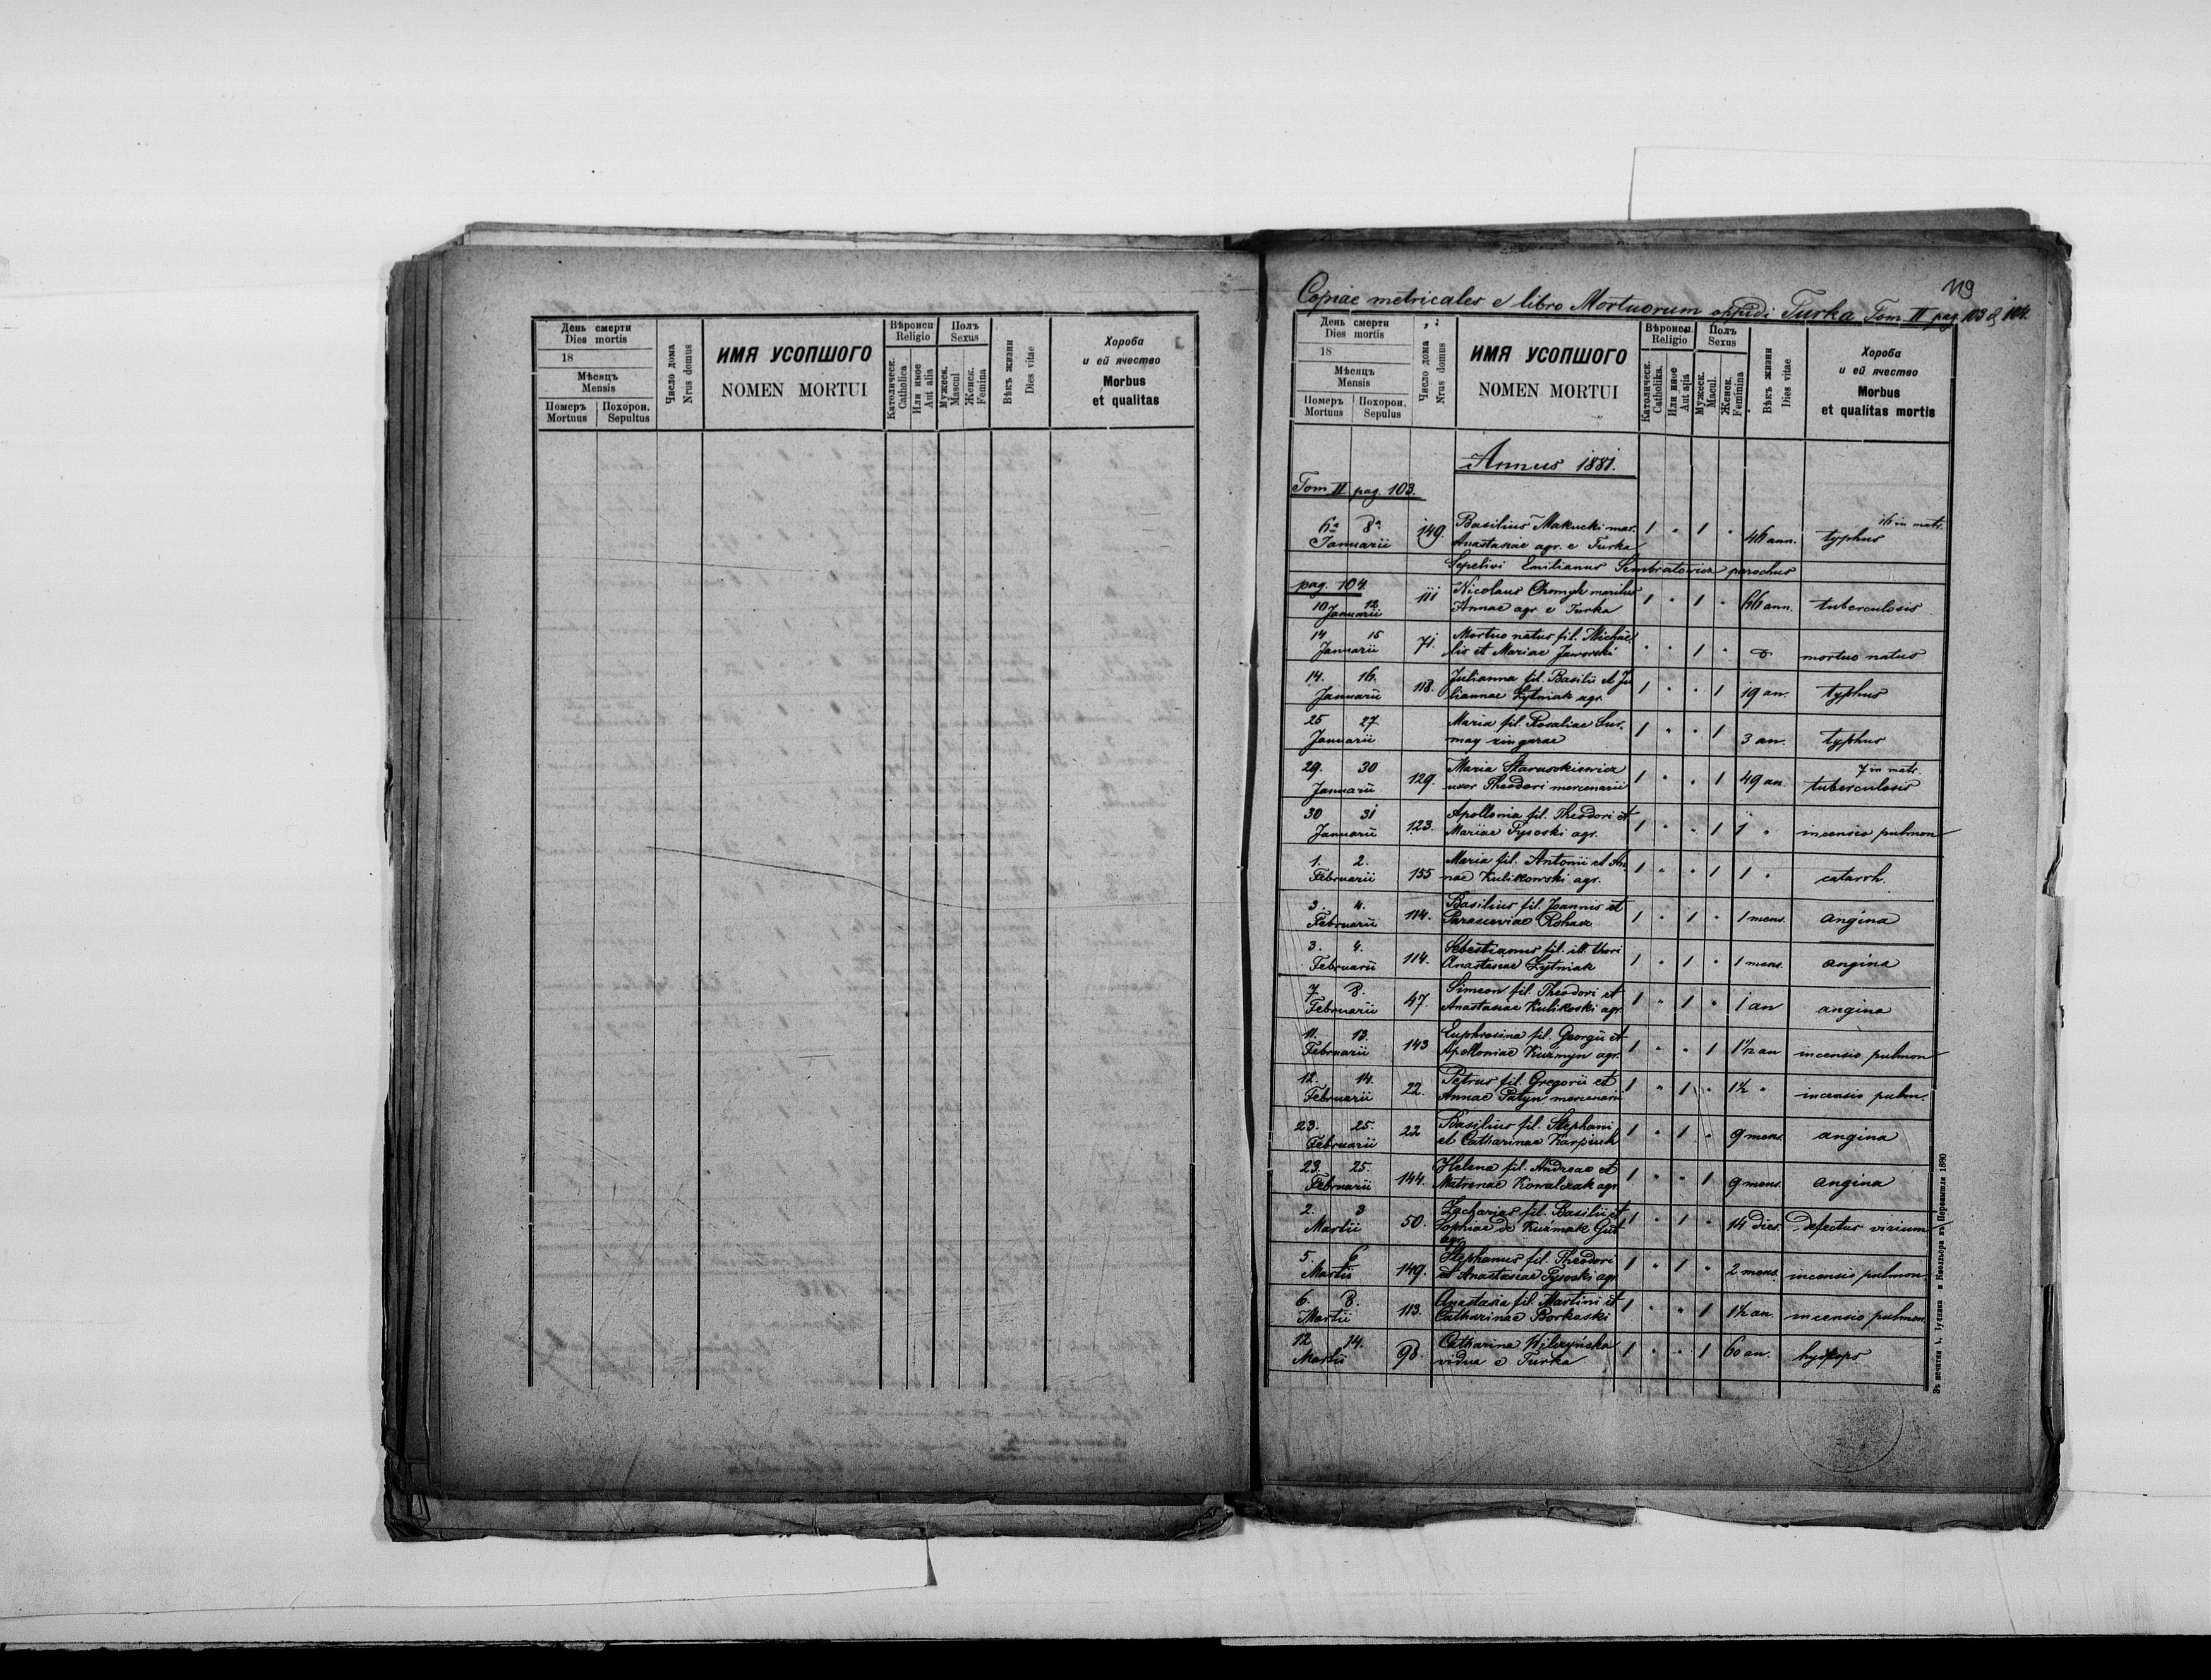 День смерти
Dies mortis
18
Мѣсяцъ
Mensis
Померъ
Mortuus
Похорон.
Sepultus
Число дома
Nrus domus
ИМЯ УСОПШОГО
NOMEN MORTUI
Вѣроисп
Religio
Католическ.
Catholica
Или иное
Aut alia
Полъ
Sexus
Мужеск.
Mascul
Женск.
Femina
Вѣкъ жизни
Dies vitae
Хороба
и ей ячество
Morbus
et qualitas
119
Copiae metricales e libro Mortuorum oppidi Turka Tom II pag. 103 & 104.
День смерти
Dies mortis
18
Мѣсяцъ
Mensis
Померъ
Mortuus
Похорон.
Sepultus
Число дома
Nrus domus
ИМЯ УСОПШОГО
NOMEN MORTUI
Вѣроисп.
Religio
Католическ.
Catholika.
Или иное
Aut alia
Полъ
Sexus
Мужеск.
Macul.
Женск.
Femina
Вѣкъ жизни
Dies vitae
Хороба
и ей ячество
Morbus
et qualitas mortis
Annus 1881.
Tom II pag. 103.
6a 8a 149. Basilius Makucki mar. 1 " 1 " 46 ann. typhus
Januarii Anastasiae agr. e Turka
Sepelivi Emilianus Sembratowicz parochus
pag. 104
10 12 111 Nicolaus Chomyk maritus 1 " 1 " 66 ann. tuberculosis
Januarii Annae agr. e Turka
14 15 71. Mortuo natus fil. Michae- " " 1 " mortuo natus
Januarii lis et Mariae Jaworski
14. 16. 118. Julianna fil. Basilii et Ju 1 " " 1 19 an. typhus
Januarii liannae Żytniak agr.
25 27 Maria fil. Rosaliae Sur- 1 " " 1 3 an. typhus
Januarii may zingarae
29. 30 129. Maria Staruszkiewicz 1 " " 1 49 an. 7 in matr.
Januarii uxor Theodori mercenarii tuberculosis
30 31 123. Apollonia fil. Theodori et 1 " " 1 1 " incensio pulmon
Januarii Mariae Pysoski agr.
1. 2. 155 Maria fil. Antonii et An- 1 " " 1 1 " catarrh.
Februarii nae Kulikowski agr.
3. 4. 114. Basilius fil. Joannis et 1 " 1 " 1 mens. angina
Februarii Parasceviae Rohacz
3. 4. 114. Sebestianus fil. ill. thori 1 " 1 " 1 mens. angina
Februarii Anastasiae Żytniak
7 8. 47. Simeon fil. Theodori et 1 " 1 " 1 an angina
Februarii Anastasiae Kulikoski agr.
11. 13. 143 Euphrosina fil. Georgii et 1 " " 1 1½ an incensio pulmon
Februarii Apolloniae Kuzmyn agr.
12. 14. 22. Petrus fil. Gregorii et 1 " 1 " 1½ " incensio pulm.
Februarii Annae Patyn mercenarii
23. 25. 22 Basilius fil. Stephani 1 " 1 " 9 mens. angina
Februarii et Catharinae
23. 25. 144. Helena fil. Andreae et 1 " " 1 9 mens. angina
Februarii Matronae Kowalczak agr
2. 3 50. Zacharias fil. Basilii et 1 " 1 " 14 dies defectus virium
Martii Sophiae de Kuźmak Gut
agr.
5. 6 149. Stephanus fil. Theodori 1 " 1 " 2 mens. incensio pulmon
Martii et Anastasiae Pysoski agr
6. 8. 113. Anastasia fil. Martini et 1 " " 1 1½ an. incensio pulmon
Martii Catharinae Borkoski
12 14. 98. Catharina Wilczyńska 1 " " 1 60 an. hydrops
Martii vidua e Turka